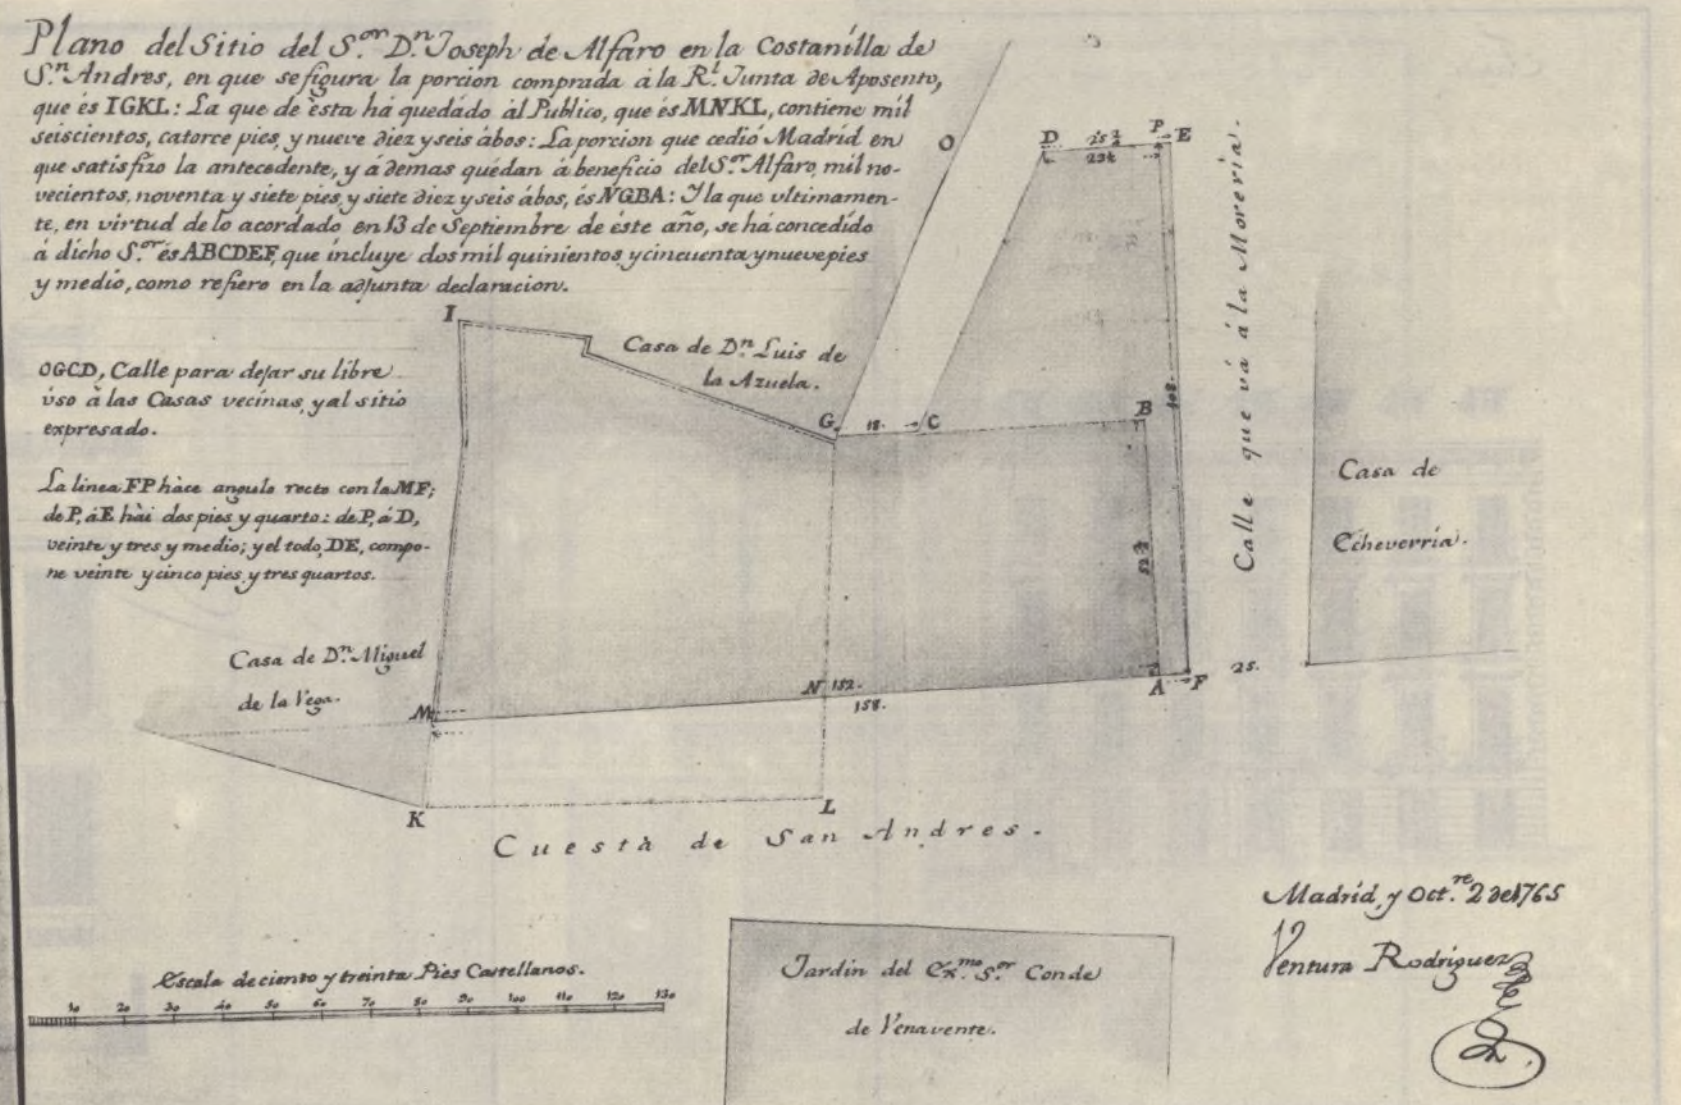 Plano del Sitio del S.or D.n Joseph de Alfaro en la Costanilla de
S.n Andres, en que se figura la porcion comprada á la R.l Junta de Aposento,
que és IGKL: La que de ésta há quedádo ál Publico, que és MNKL, contiene mil
seiscientos, catorce pies, y nueve diez y seis ábos: La porcion que cedió Madrid en
que satisfizo la antecedente, y ádemas quédan á beneficio del S.or Alfaro, mil no-
vecientos, noventa y siete pies, y siete diez y seis ábos, és NGBA: Y la que ultimamen-
te, en virtud de lo acordádo en 13 de Septiembre de éste año, se há concedído
á dicho S.or és ABCDEF, que incluye dos mil quinientos, y cincuenta y nueve pies
y medio, como refiero en la adjunta declaracion.
OGCD, Calle para dejar su libre
úso à las Casas vecinas, y al sitio
expresado.
La linea FP hàce angulo recto con la MF;
de P, á E hài dos pies y quarto: de P, á D,
veinte y tres y medio; y el todo, DE, compo-
ne veinte y cinco pies, y tres quartos.
O
D 25 3/4 P E
23 1/2
I
Casa de D.n Luis de
la Azuela.
G 18. C B
108.
52 3/4
Calle que vá á la Morería.
Casa de
Echeverría.
Casa de D.n Miguel
de la Vega.
M N 152. A F 25.
158.
K L
Cuesta de San Andres.
Madrid, y Oct.re 2 de 1765
Ventura Rodriguez
Escala de ciento y treinta Pies Castellanos.
10 20 30 40 50 60 70 80 90 100 110 120 130
Jardin del Ex.mo S.or Conde
de Venavente.